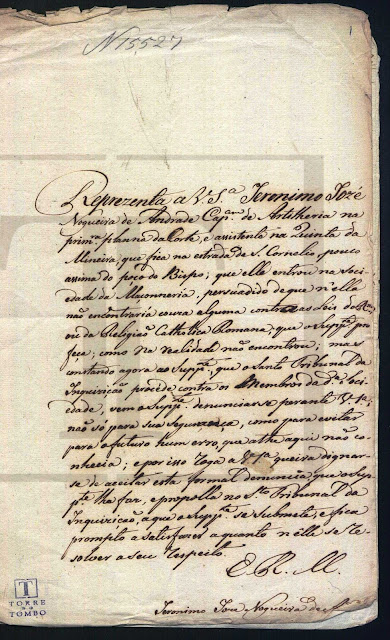 N 15527
1
Reprezenta a V. S.ª Jeronimo Jozé
Nogueira de Andrade Cap.am de Artilheria na
prim.ra planna da Corte, e assistente na Quinta da
Mineira, que fica na estrada de S. Cornelio, pouco
assima do poço do Bispo; que elle entrou na Soci-
edade da Maçonneria, persuadido de que n'ella
não encontraria couza alguma contra as Leis do
ou da Religião Catholica Romana, que o Supp.e pro-
feça; como na realidade não encontrou; mas
constando agora ao Supp.e que o Santo Tribunal da
Inquizição procede contra os Membros da d.ª Soci-
edade, vem o Supp.e denunciarse perante V. S.ª,
não só para sua segurança, como para evitar
para o futuro hum erro, que athe aqui não co-
nhecia; e por isso roga a V. S.ª queira dignar-
se de aceitar esta formal denuncia que o Sup-
p.te lhe faz, e propolla no S.to Tribunal da
Inquizição, a que o Supp.te se submete, e fica
prompto a satisfazer a quanto n'elle se re-
solver a seu respeito.
E. R. M.
Jeronimo Joze Nogueira de
T
TORRE
DO
TOMBO